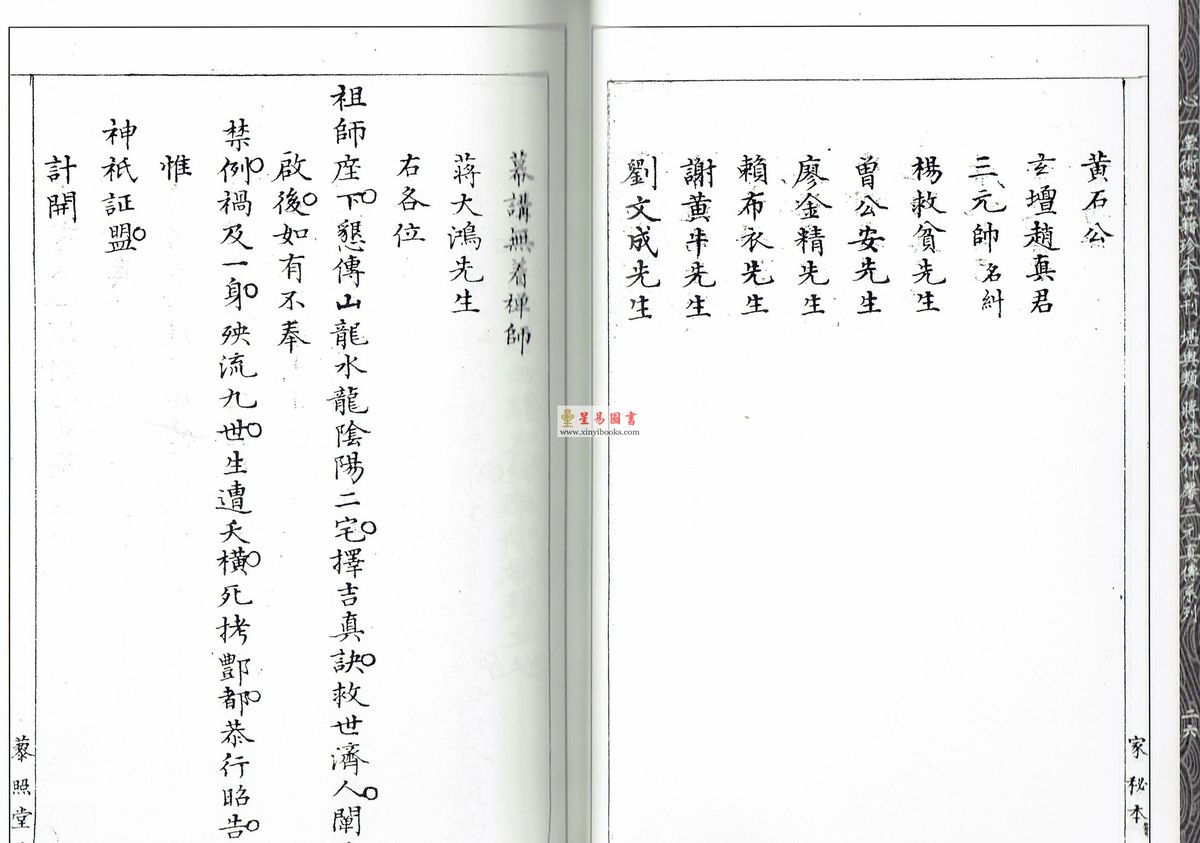 黃石公
玄壇趙真君
三元帥名糾
楊救貧先生
曾公安先生
廖金精先生
賴布衣先生
謝黃牛先生
劉文成先生
家秘本
二六
幕講無着禅師
蔣大鴻先生
右各位
祖師座下。懇傳山龍水龍陰陽二宅。擇吉真訣。救世濟人。闡
啟後。如有不奉
禁例。禍及一身。殃流九世。生遭夭橫。死拷酆都。恭行昭告。
惟
神祇証盟。
計開
藜照堂
星易圖書
www.xinyibooks.com